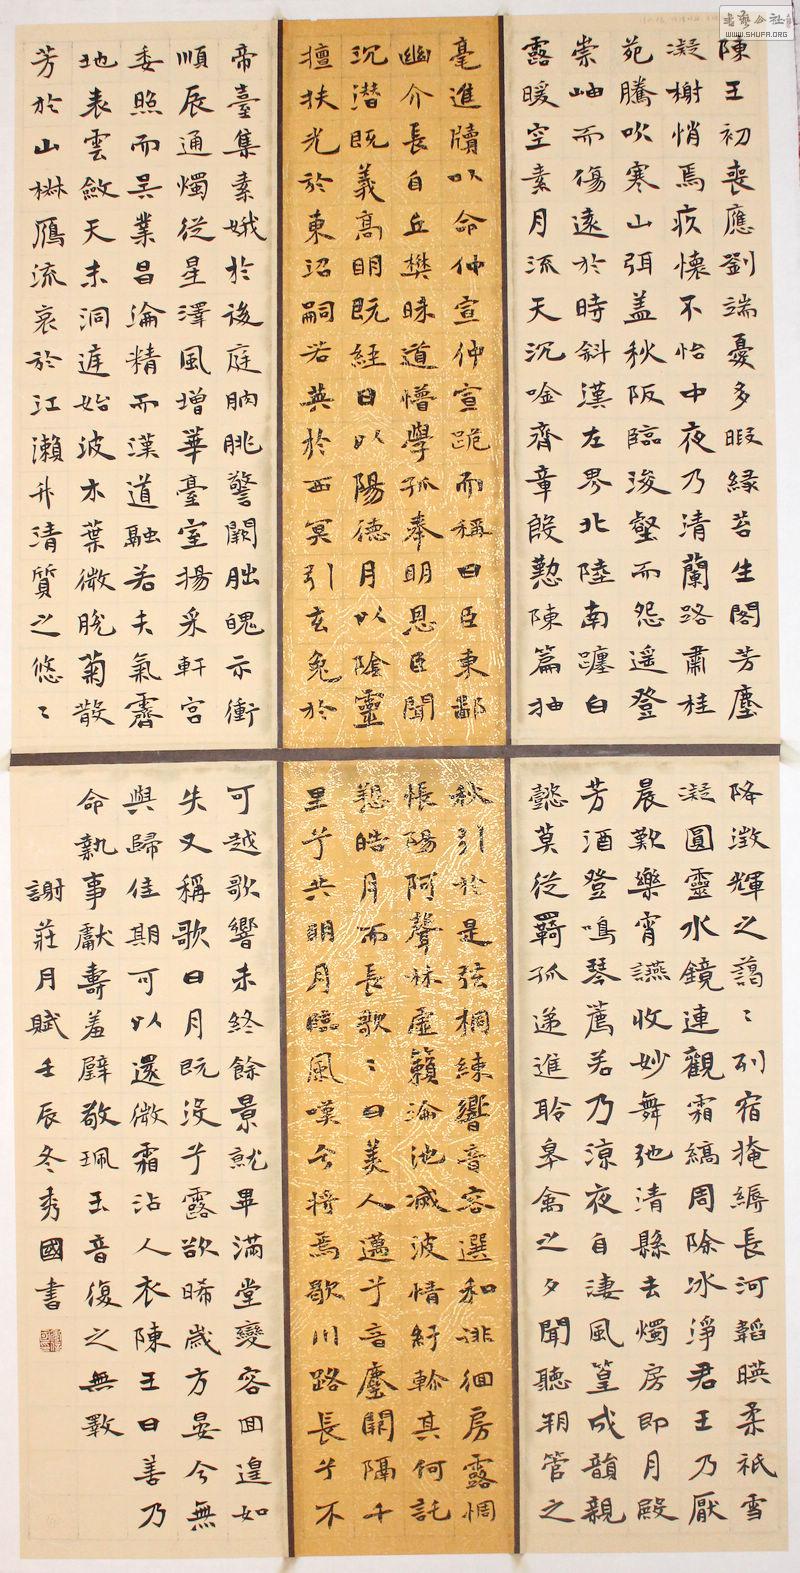 書藝公社
WWW.SHUFA.ORG
陳王初喪應劉端憂多暇緣苔生閣芳塵
凝榭悄焉疚懷不怡中夜乃清蘭路肅桂
苑騰吹寒山弭蓋秋阪臨浚壑而怨遥登
崇岫而傷遠於時斜漢左界北陸南躔白
露暖空素月流天沉唫齊章殷懃陳篇抽
毫進牘以命仲宣仲宣跪而稱曰臣東鄙
幽介長自丘樊昧道懵學孤奉明恩臣聞
沉潛既義高明既經日以陽德月以陰靈
擅扶光於東沼嗣若英於西冥引玄兔於
帝臺集素娥於後庭朒朓警闕朏魄示衝
順辰通燭從星澤風增華臺室揚采軒宮
委照而吳業昌淪精而漢道融若夫氣霽
地表雲斂天末洞庭始波木葉微脫菊散
芳於山椒鴈流哀於江瀨升清質之悠〻
降澂輝之藹〻列宿掩縟長河韜暎柔祇雪
凝圓靈水鏡連觀霜縞周除冰淨君王乃厭
晨歡樂宵讌收妙舞弛清縣去燭房即月殿
芳酒登鳴琴薦若乃涼夜自淒風篁成韻親
懿莫從羇孤遞進聆皋禽之夕聞聽朔管之
秋引於是弦桐練響音容選和徘徊房露惆
悵陽阿聲林虛籟淪池滅波情紓軫其何託
愬皓月而長歌〻曰美人邁兮音塵闕隔千
里兮共明月臨風嘆兮將焉歇川路長兮不
可越歌響未終餘景就畢滿堂變容回遑如
失又稱歌曰月既沒兮露欲晞歲方晏兮無
與歸佳期可以還微霜沾人衣陳王曰善乃
命執事獻壽羞璧敬珮玉音復之無斁
謝莊月賦壬辰冬秀國書